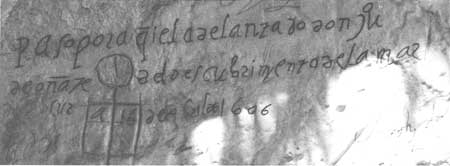 paso por aq̃i el adelantado don jũ
de oñate descubrimiento de la mar
sur a 16 de abril 606